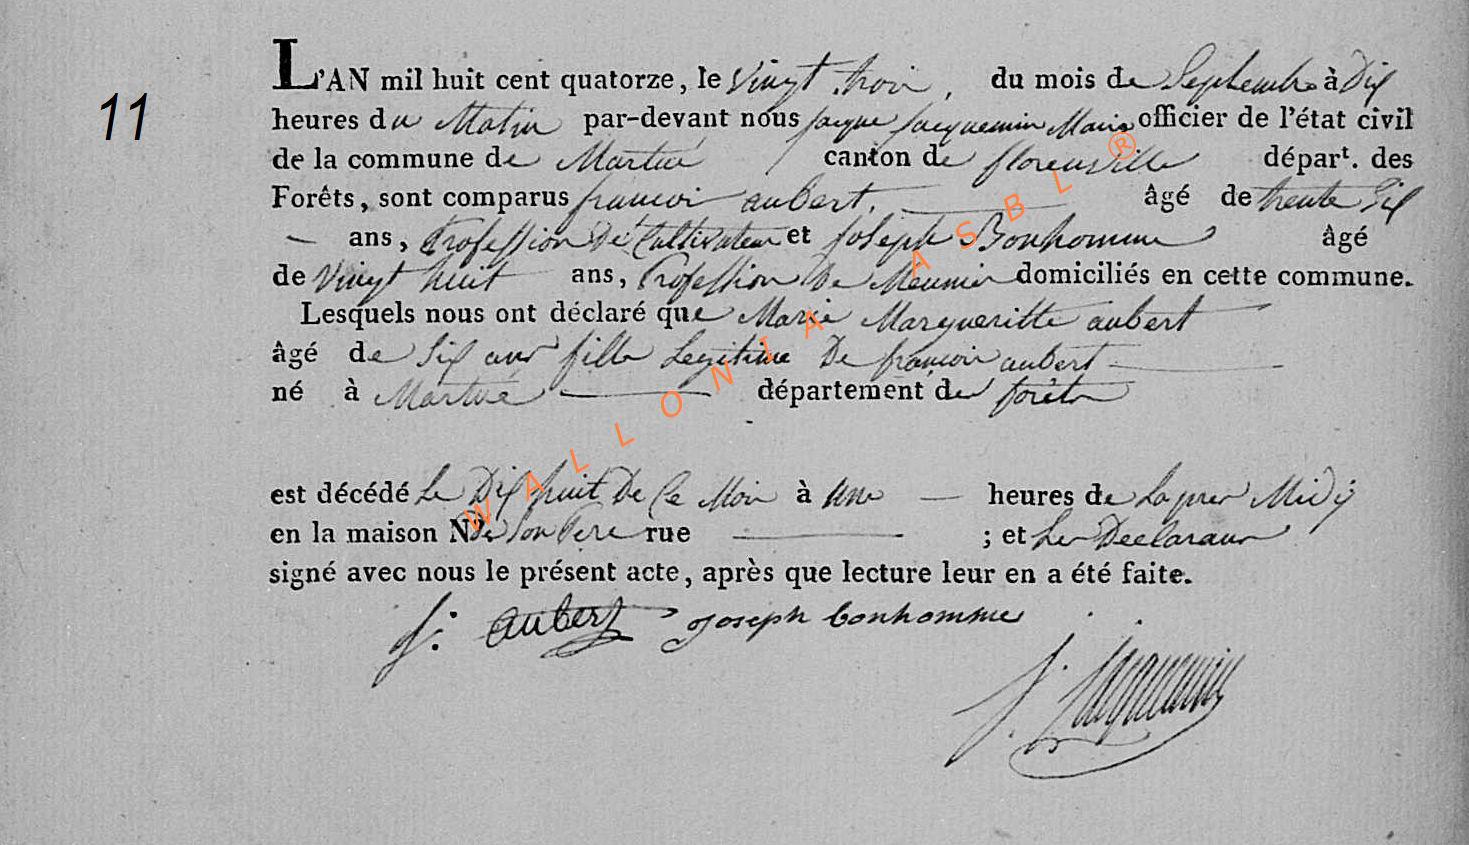 11
L'AN mil huit cent quatorze, le vingt trois, du mois de Septembre à Dix
heures du Matin par-devant nous jacque jacquemin Maire officier de l'état civil
de la commune de Martué canton de florenville départ. des
Forêts, sont comparus françois aubert, âgé de trente Six
ans, Profession De Cultivateur et joseph Bonhomme âgé
de vingt huit ans, Profession De Meunier domiciliés en cette commune.
Lesquels nous ont déclaré que Marie Margueritte aubert
âgé de Six ans fille Legitime De françois aubert
né à Martué département des forêts
est décédé Le Dix huit De Ce Mois à une heures de Lapres Midÿ
en la maison N° De Son Pere rue ; et Les Declarans
signé avec nous le présent acte, après que lecture leur en a été faite.
f: aubert joseph bonhomme
J. Jacquemin
WALLONIA ASBL ®